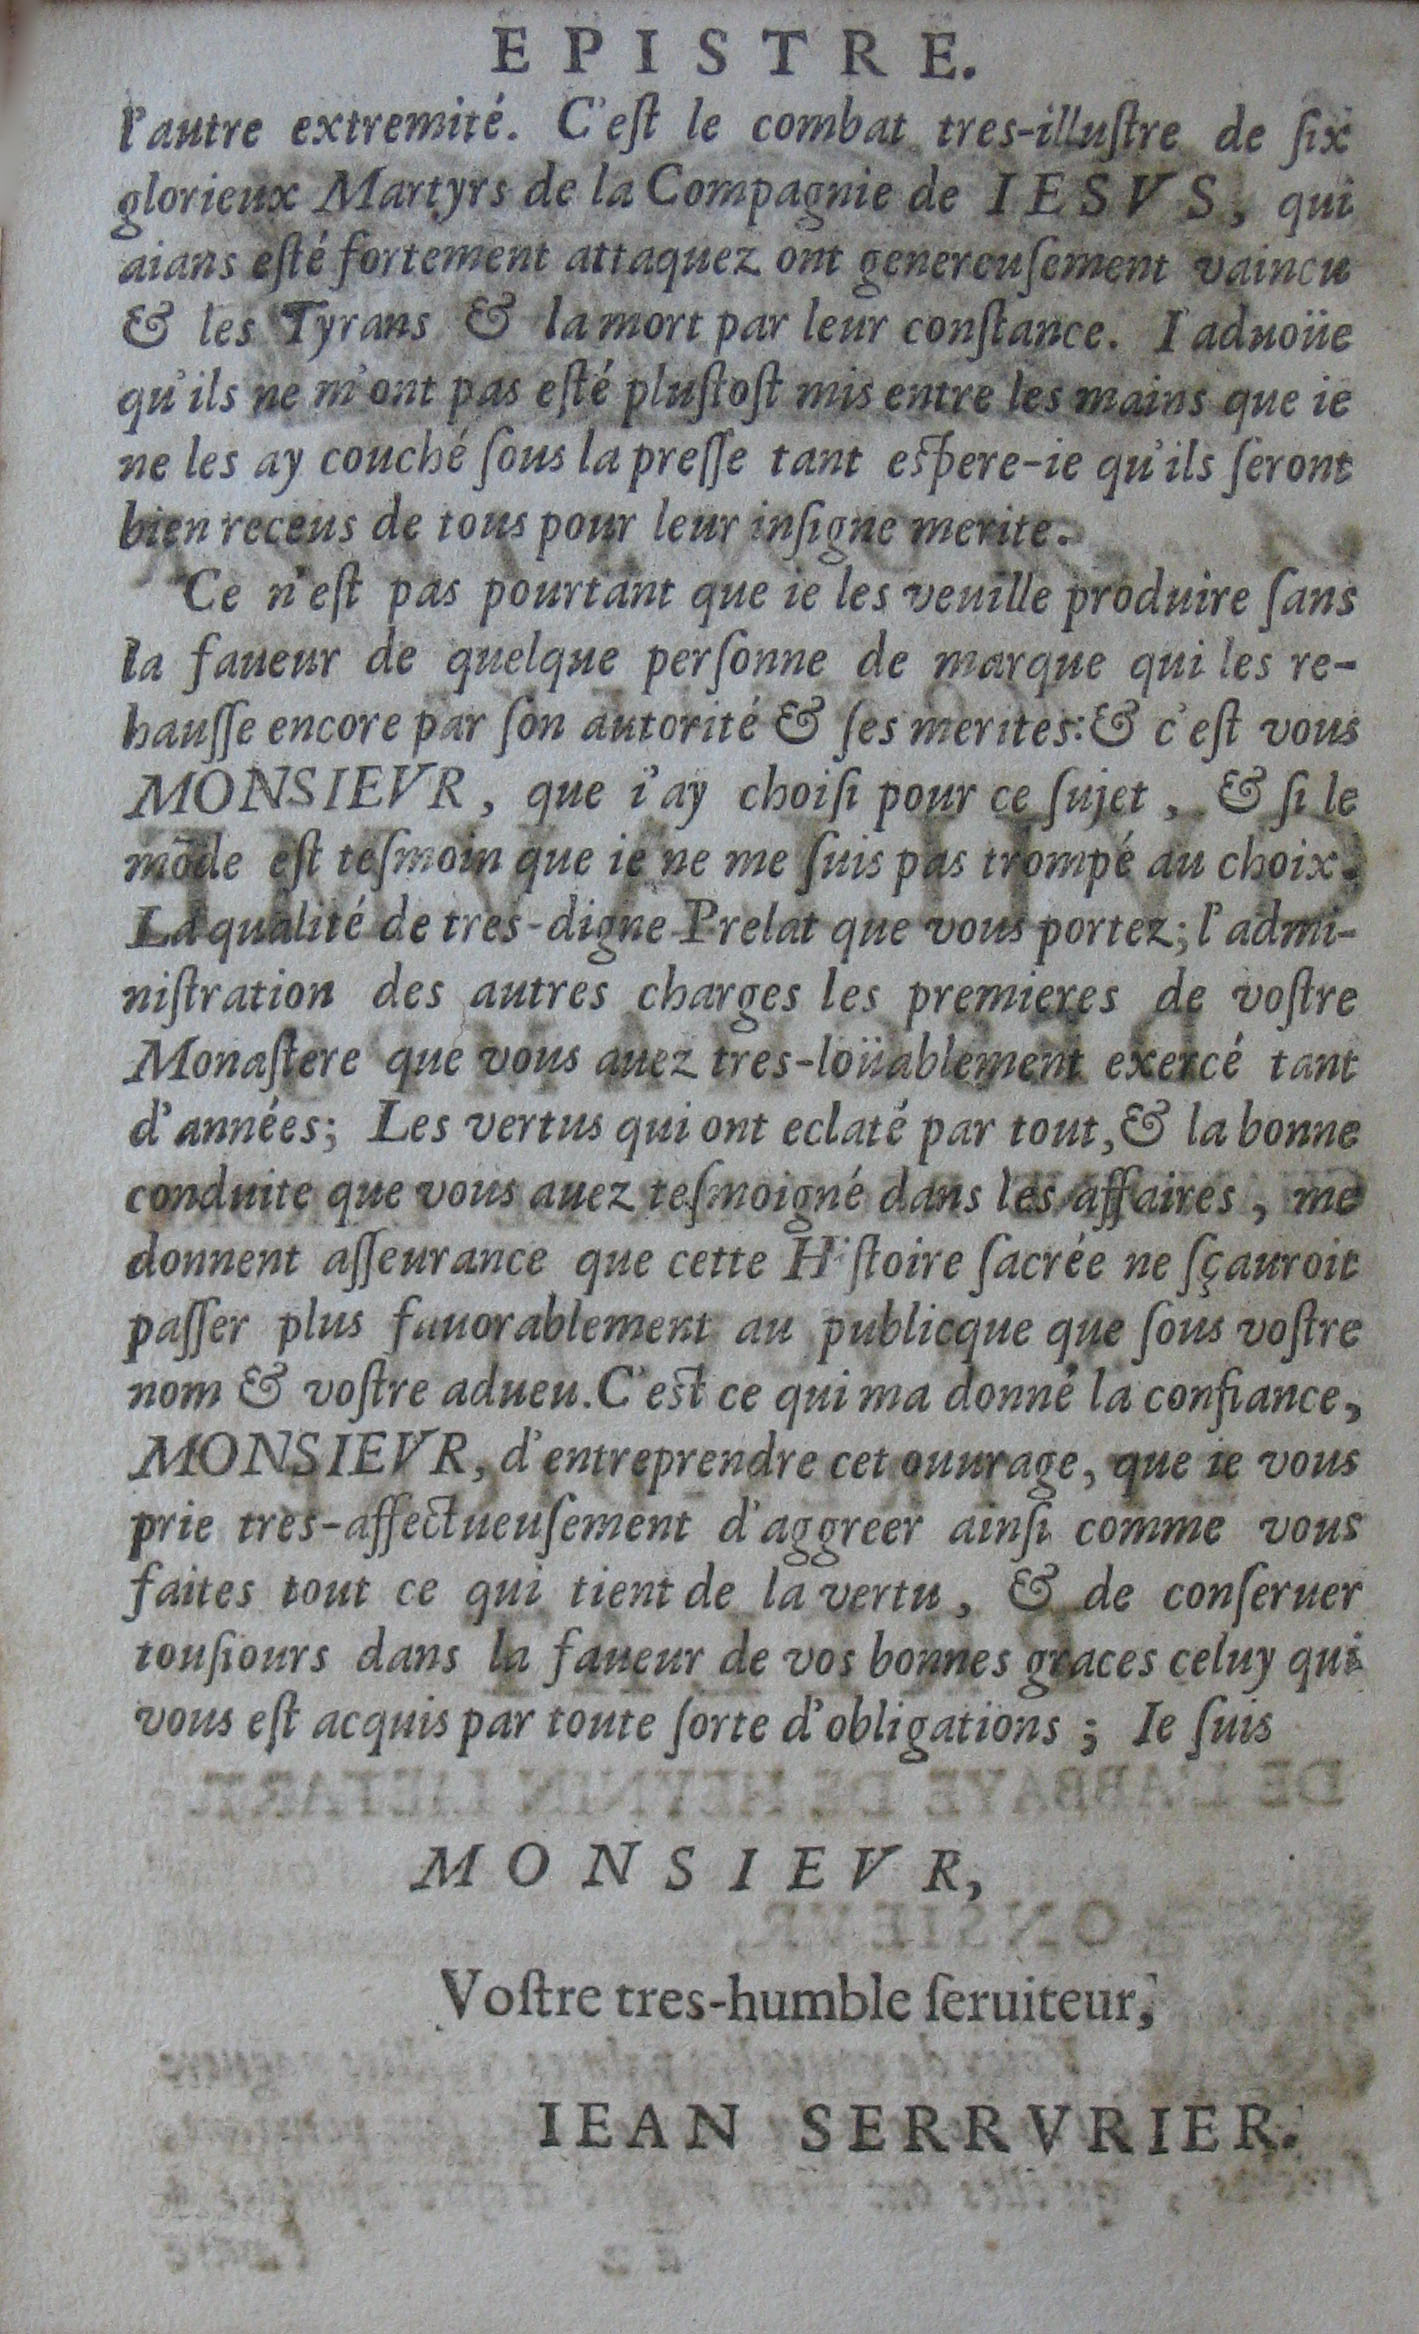 EPISTRE.
l'autre extremité. C'eſt le combat tres-illuſtre de ſix
glorieux Martyrs de la Compagnie de IESVS, qui
aians eſté fortement attaquez ont genereuſement vaincu
& les Tyrans & la mort par leur conſtance. I'aduoüe
qu'ils ne m'ont pas eſté pluſtoſt mis entre les mains que ie
ne les ay couché ſous la preſſe tant eſpere-ie qu'ils ſeront
bien receus de tous pour leur inſigne merite.
Ce n'eſt pas pourtant que ie les veuille produire ſans
la faueur de quelque perſonne de marque qui les re-
hauſſe encore par ſon autorité & ſes merites: & c'eſt vous
MONSIEVR, que i'ay choiſi pour ce ſujet, & ſi le
mõde eſt teſmoin que ie ne me ſuis pas trompé au choix.
La qualité de tres-digne Prelat que vous portez; l'admi-
niſtration des autres charges les premieres de voſtre
Monaſtere que vous auez tres-loüablement exercé tant
d'années; Les vertus qui ont eclaté par tout, & la bonne
conduite que vous auez teſmoigné dans les affaires, me
donnent aſſeurance que cette Hiſtoire ſacrée ne ſçauroit
paſſer plus fauorablement au publicque que ſous voſtre
nom & voſtre adueu. C'eſt ce qui ma donné la confiance,
MONSIEVR, d'entreprendre cet ouurage, que ie vous
prie tres-affectueuſement d'aggreer ainſi comme vous
faites tout ce qui tient de la vertu, & de conſeruer
touſiours dans la faueur de vos bonnes graces celuy qui
vous eſt acquis par toute ſorte d'obligations; Ie ſuis
MONSIEVR,
Voſtre tres-humble ſeruiteur,
IEAN SERRVRIER.